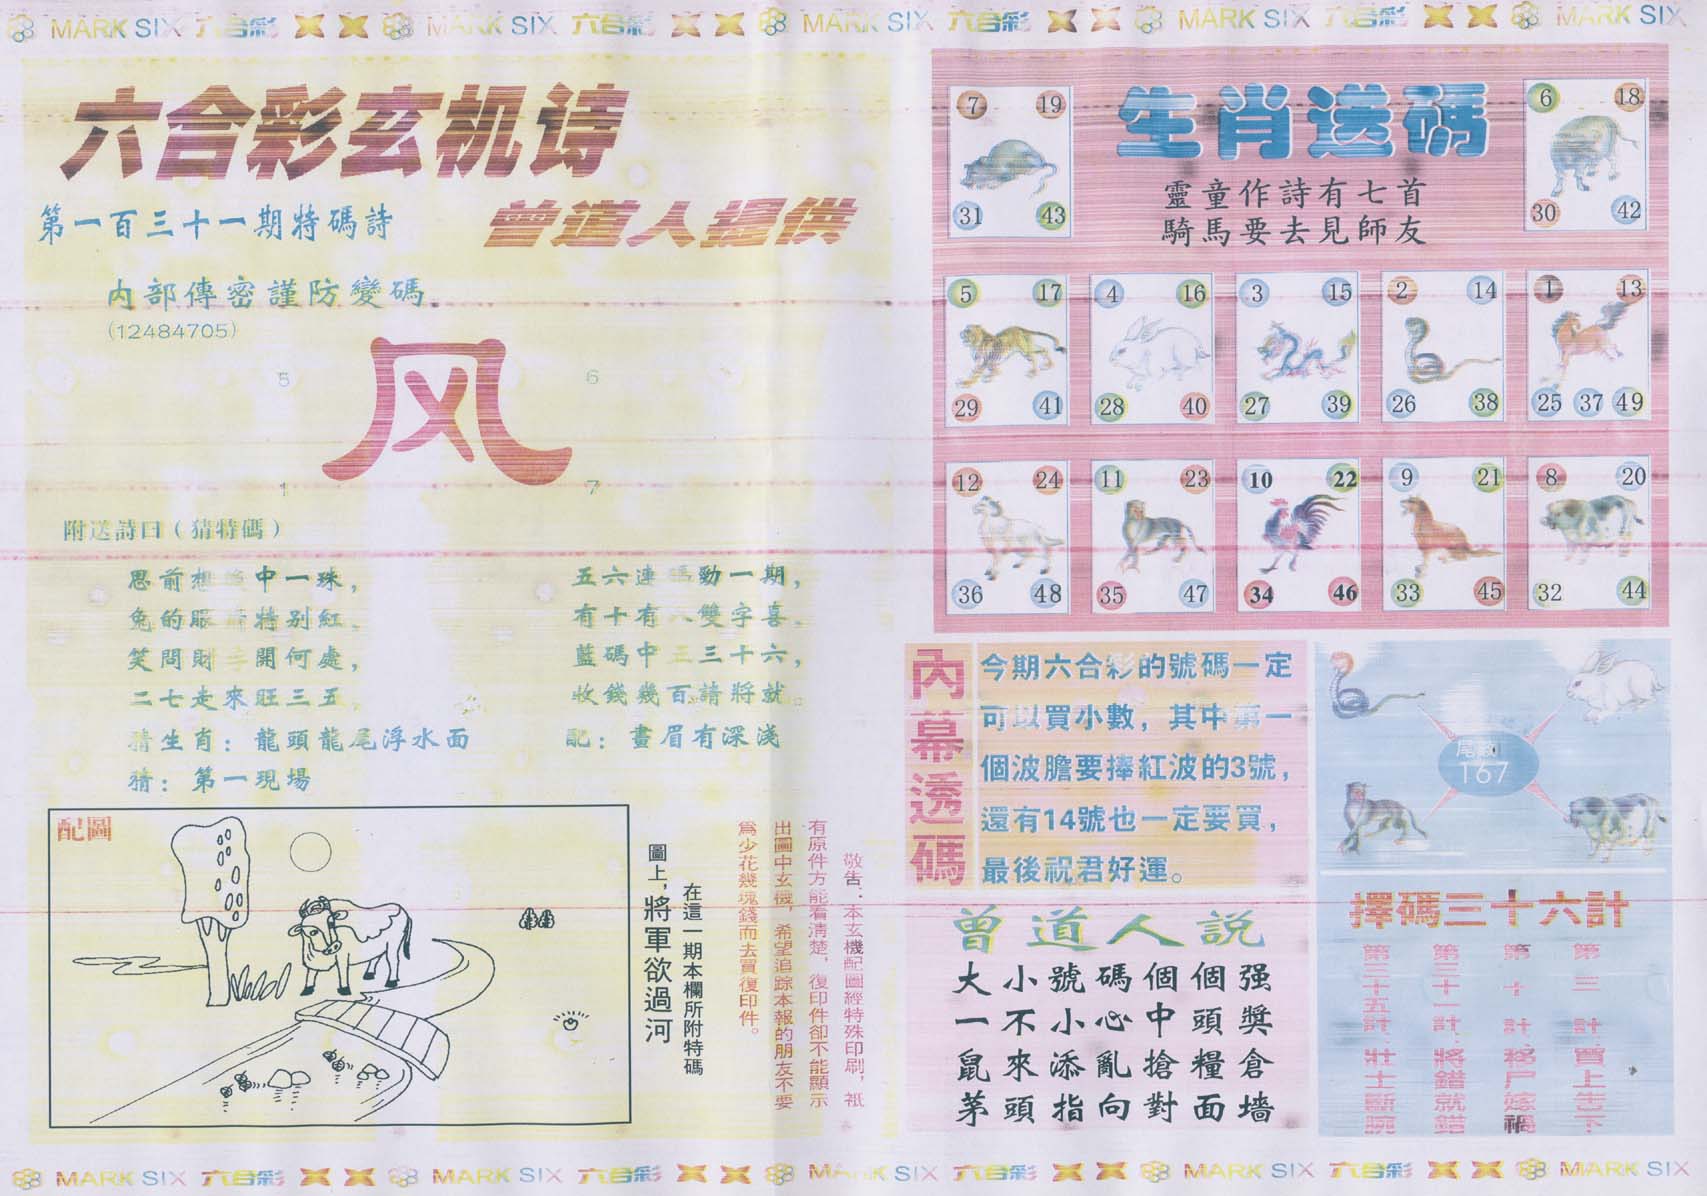 MARK SIX 六合彩 MARK SIX 六合彩 MARK SIX 六合彩 MARK SIX 六合彩 MARK SIX
六合彩玄机诗
第一百三十一期特碼詩
曾道人提供
内部傳密謹防變碼
(12484705)
5 6
风
1 7
附送詩曰(猜特碼)
思前想 中一珠，
兔的眼 特别紅。
笑問財 開何處，
二七走來旺三五。
五六連 勁一期，
有十有八雙字喜。
藍碼中 三十六，
收錢幾百請將就。
猜生肖：龍頭龍尾浮水面
配：畫眉有深淺
猜：第一現場
配圖
在這一期本欄所附特碼
圖上，將軍欲過河
敬告：本玄機配圖經特殊印刷，祇
有原件方能看清楚，復印件卻不能顯示
出圖中玄機，希望追踪本報的朋友不要
爲少花幾塊錢而去買復印件。
生肖送碼
靈童作詩有七首
騎馬要去見師友
7 19
31 43
6 18
30 42
5 17
29 41
4 16
28 40
3 15
27 39
2 14
26 38
1 13
25 37 49
12 24
36 48
11 23
35 47
10 22
34 46
9 21
33 45
8 20
32 44
內幕透碼
今期六合彩的號碼一定
可以買小數，其中第一
個波膽要捧紅波的3號，
還有14號也一定要買，
最後祝君好運。
167
曾道人説
大小號碼個個强
一不小心中頭獎
鼠來添亂搶糧倉
茅頭指向對面墻
擇碼三十六計
第三計：賈上告下
第十計：移尸嫁禍
第三十一計：將錯就錯
第三十五計：壯士斷腕
MARK SIX 六合彩 MARK SIX 六合彩 MARK SIX 六合彩 MARK SIX 六合彩 MARK SIX